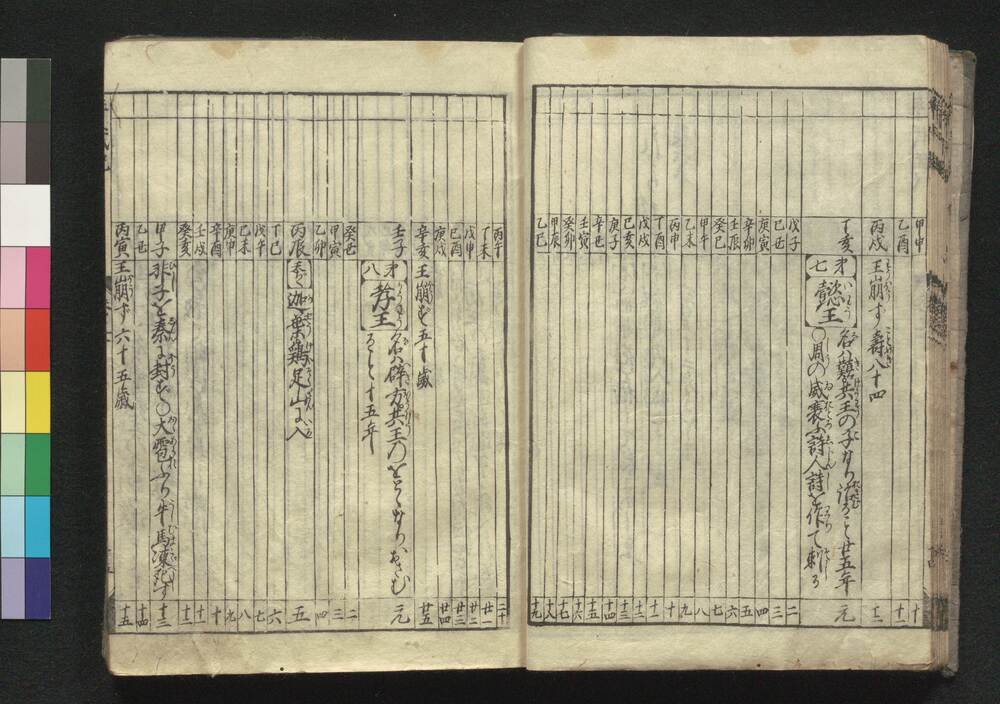 甲申 十
乙酉 十一
丙戌 王崩ず壽八十四 十二
丁亥 【才七】懿王 名ハ囏共王の子なり治ること廿五年 元
〇周の威衰ふ詩人詩を作て刺る
戊子 二
己丑 三
庚寅 四
辛卯 五
壬辰 六
癸巳 七
甲午 八
乙未 九
丙申 十
丁酉 十一
戊戌 十二
己亥 十三
庚子 十四
辛丑 十五
壬寅 十六
癸卯 十七
甲辰 十八
乙巳 十九
丙午 二十
丁未 廿一
戊申 廿二
己酉 廿三
庚戌 廿四
辛亥 王崩ず五十歳 廿五
壬子 【才八】孝王 名ハ辟方共王のおとゝなりおさむ 元
ること十五年
癸丑 二
甲寅 三
乙卯 四
丙辰 迦葉鶏足山に入 五
丁巳 六
戊午 七
己未 八
庚申 九
辛酉 十
壬戌 十一
癸亥 十二
甲子 非子を秦に封ず〇大雹ふり牛馬凍死す 十三
乙丑 十四
丙寅 王崩ず六十五歳 十五